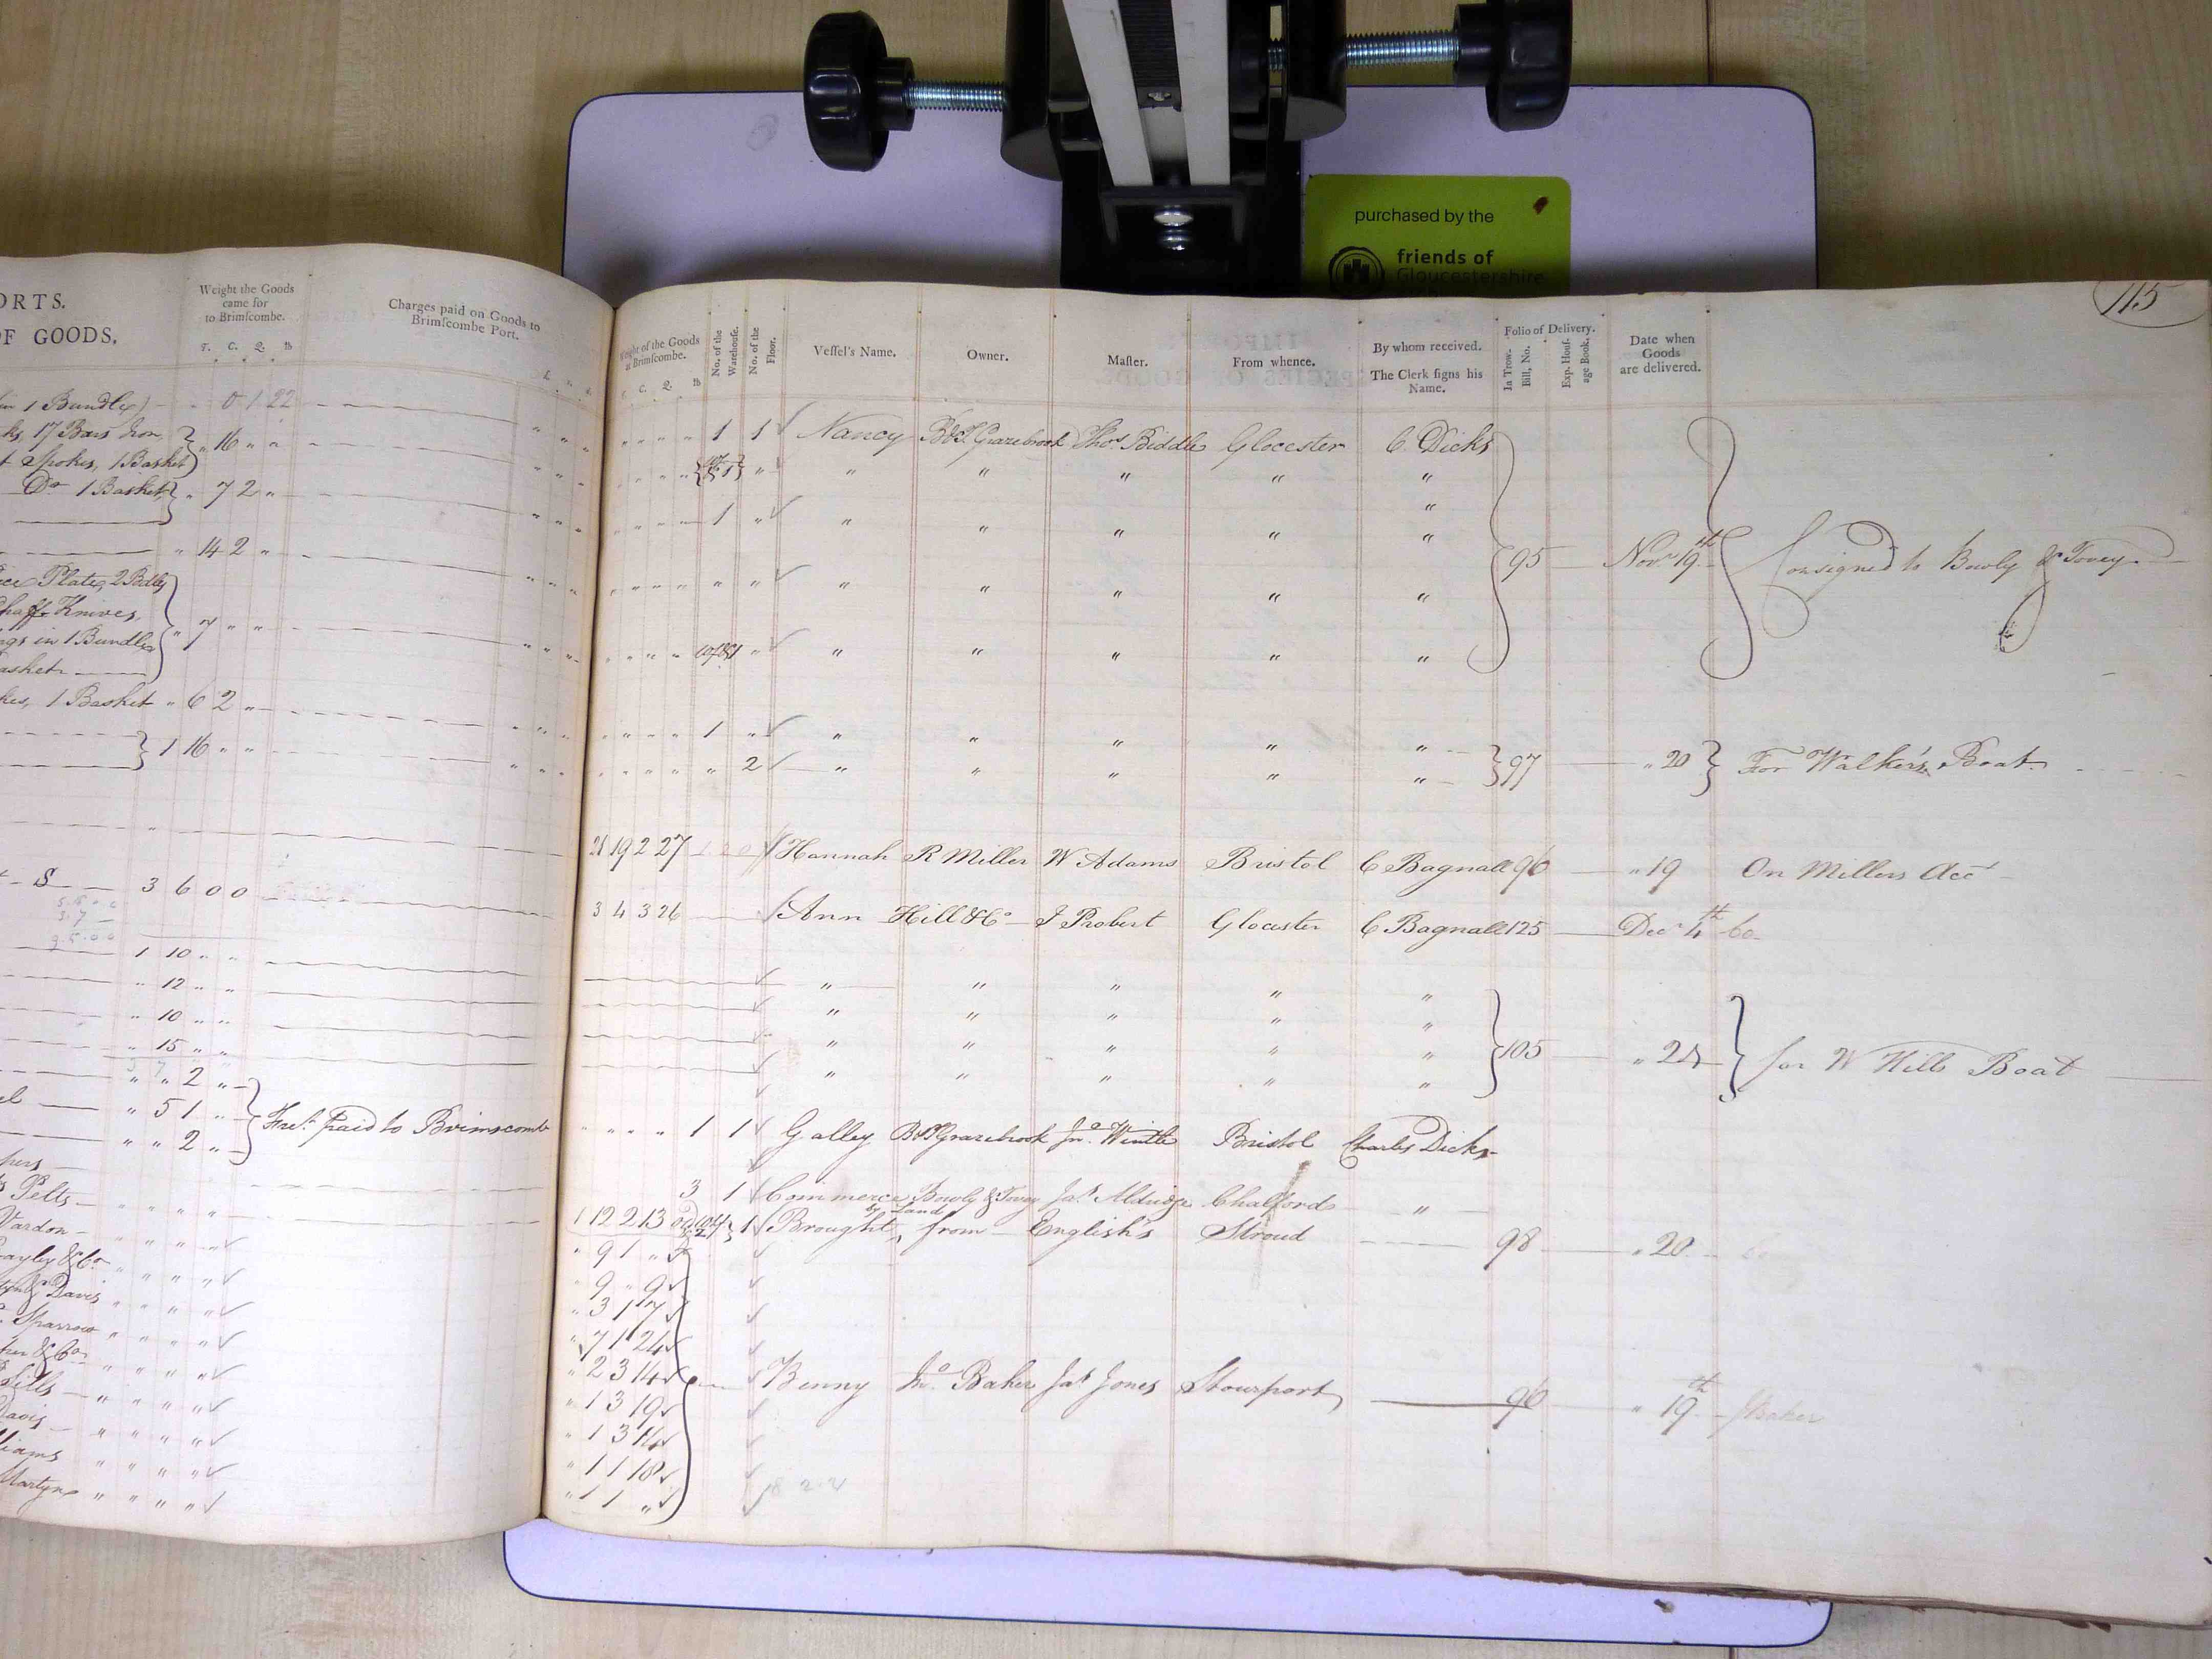 purchased by the
friends of
Gloucestershire
115
ORTS.
OF GOODS.
Weight the Goods
came for
to Brimſcombe.
T. C. Q. lb
Charges paid on Goods to
Brimſcombe Port.
in 1 Bundle) 0 1 22
17 Bars Iron
Spokes, 1 Basket } " 16 " "
Do 1 Basket } " 7 2 "
" 14 2 "
Plates, 2 Bdls
Chaff Knives,
in 1 Bundle } " 7 " "
Basket
1 Basket " 6 2 "
} 1 16 " "
3 6 0 0
1 10 " "
" 12 " "
" 10 " "
" 15 " "
" " 2 "
" 5 1 "
" " 2 " } Fret. paid to Brimscomb
Pelts " " " "
Vardon " " " "
Bayley & Co " " " "
& Davis " " " "
Sparrow " " " "
& Co " " " "
Sills " " " "
Davis " " " "
" " " "
Martyn " " " "
Weight of the Goods
at Brimſcombe.
T. C. Q. lb
No. of the
Warehouſe.
No. of the
Floor.
Veſſel's Name.
Owner.
Maſter.
From whence.
By whom received.
The Clerk ſigns his
Name.
Folio of Delivery.
In Trow.
Bill, No.
Exp. Houſ-
age Book.
Date when
Goods
are delivered.
" " " " 1 1 Nancy B&T Grazebrook Thos. Biddle Glocester C. Dicks
" " " " " "
1 " " " " " "
95 Novr. 19th Consigned to Bowly & Tovey
" " " " " "
" " " " " "
1 " " " " " "
2 " " " " " } 97 " 20 } For Walker's Boat
21 19 2 27 Hannah R Miller W Adams Bristol C Bagnall 96 " 19 On Millers Acct
3 4 3 26 Ann Hill & Co J Probert Glocester C Bagnall 125 Decr 4th
" " " " "
" " " " "
" " " " " } 105 " 24 } for W Hills Boat
" " " " "
" " " " 1 1 Galley B&T Grazebrook Jno. Wintle Bristol Charles Dicks
3 1 Commerce Bowly & Tovey Jas. Aldridge Chalford "
by Land
1 12 2 13 1 Brought from English's Stroud 98 " 20
" 9 1 "
" 9 " 9
" 3 1 7
" 7 1 24
" 2 3 14 Benny Jno. Baker Jas Jones Stourport 96 " 19th Baker
" 1 3 19
" 1 3 14
" 1 1 18
" 1 1 "